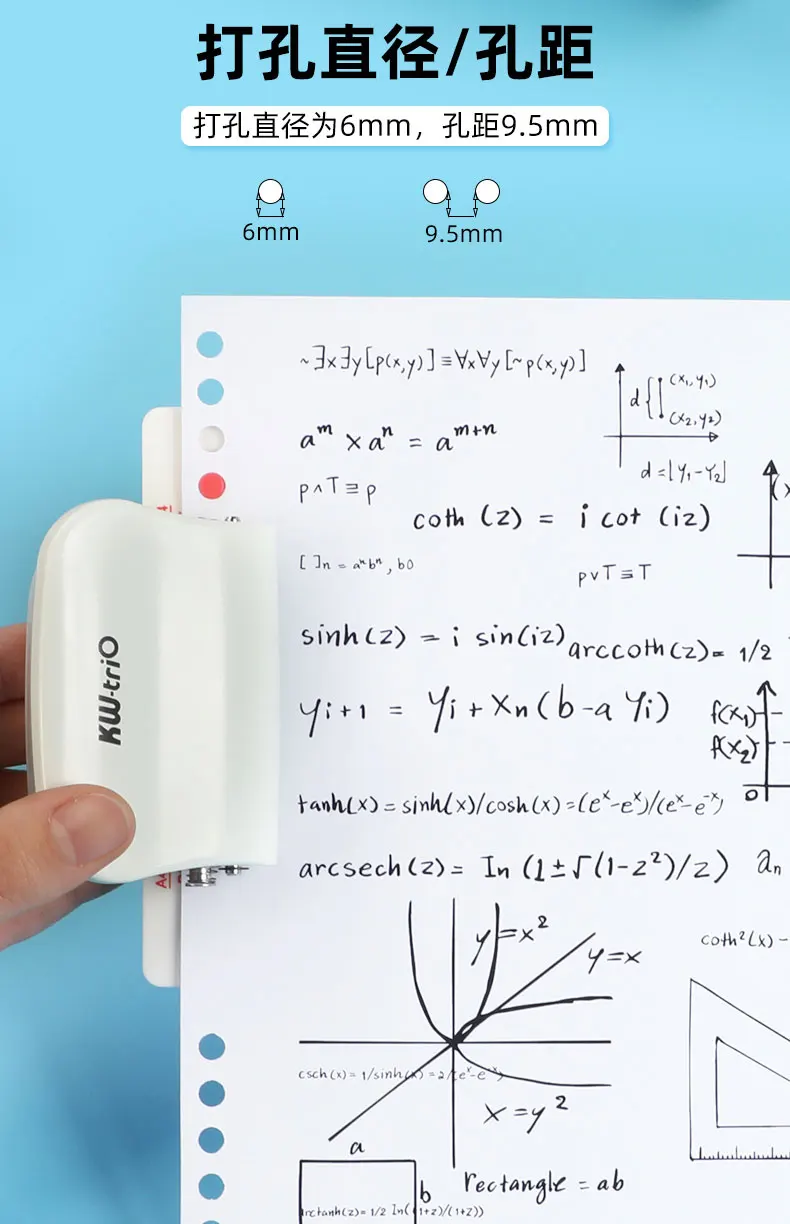 打孔直径/孔距
打孔直径为6mm，孔距9.5mm
6mm
9.5mm
~∃x∃y[p(x,y)]≡∀x∀y[~p(x,y)]
d
(x₁,y₁)
(x₂,y₂)
d=⌊y₁-y₂⌋
aᵐ × aⁿ = aᵐ⁺ⁿ
p∧T≡p
coth (z) = i cot (iz)
[ ]n = aⁿbⁿ, b0
p∨T≡T
sinh(z) = i sin(iz)
arccoth(z)= 1/2
KW-triO
yi+1 = yi + Xn(b-a yi)
f(x₁)
f(x₂)
0
tanh(x)=sinh(x)/cosh(x)=(eˣ-eˣ)/(eˣ-e⁻ˣ)
arcsech(z)= In (1±√(1-z²)/z)
an
y=x²
y=x
coth²(x) -
csch(x)= 1/sinh(x) =2/(eˣ-e⁻ˣ)
x=y²
a
b
rectangle = ab
rctanh(z)= 1/2 In((1+z)/(1+z))